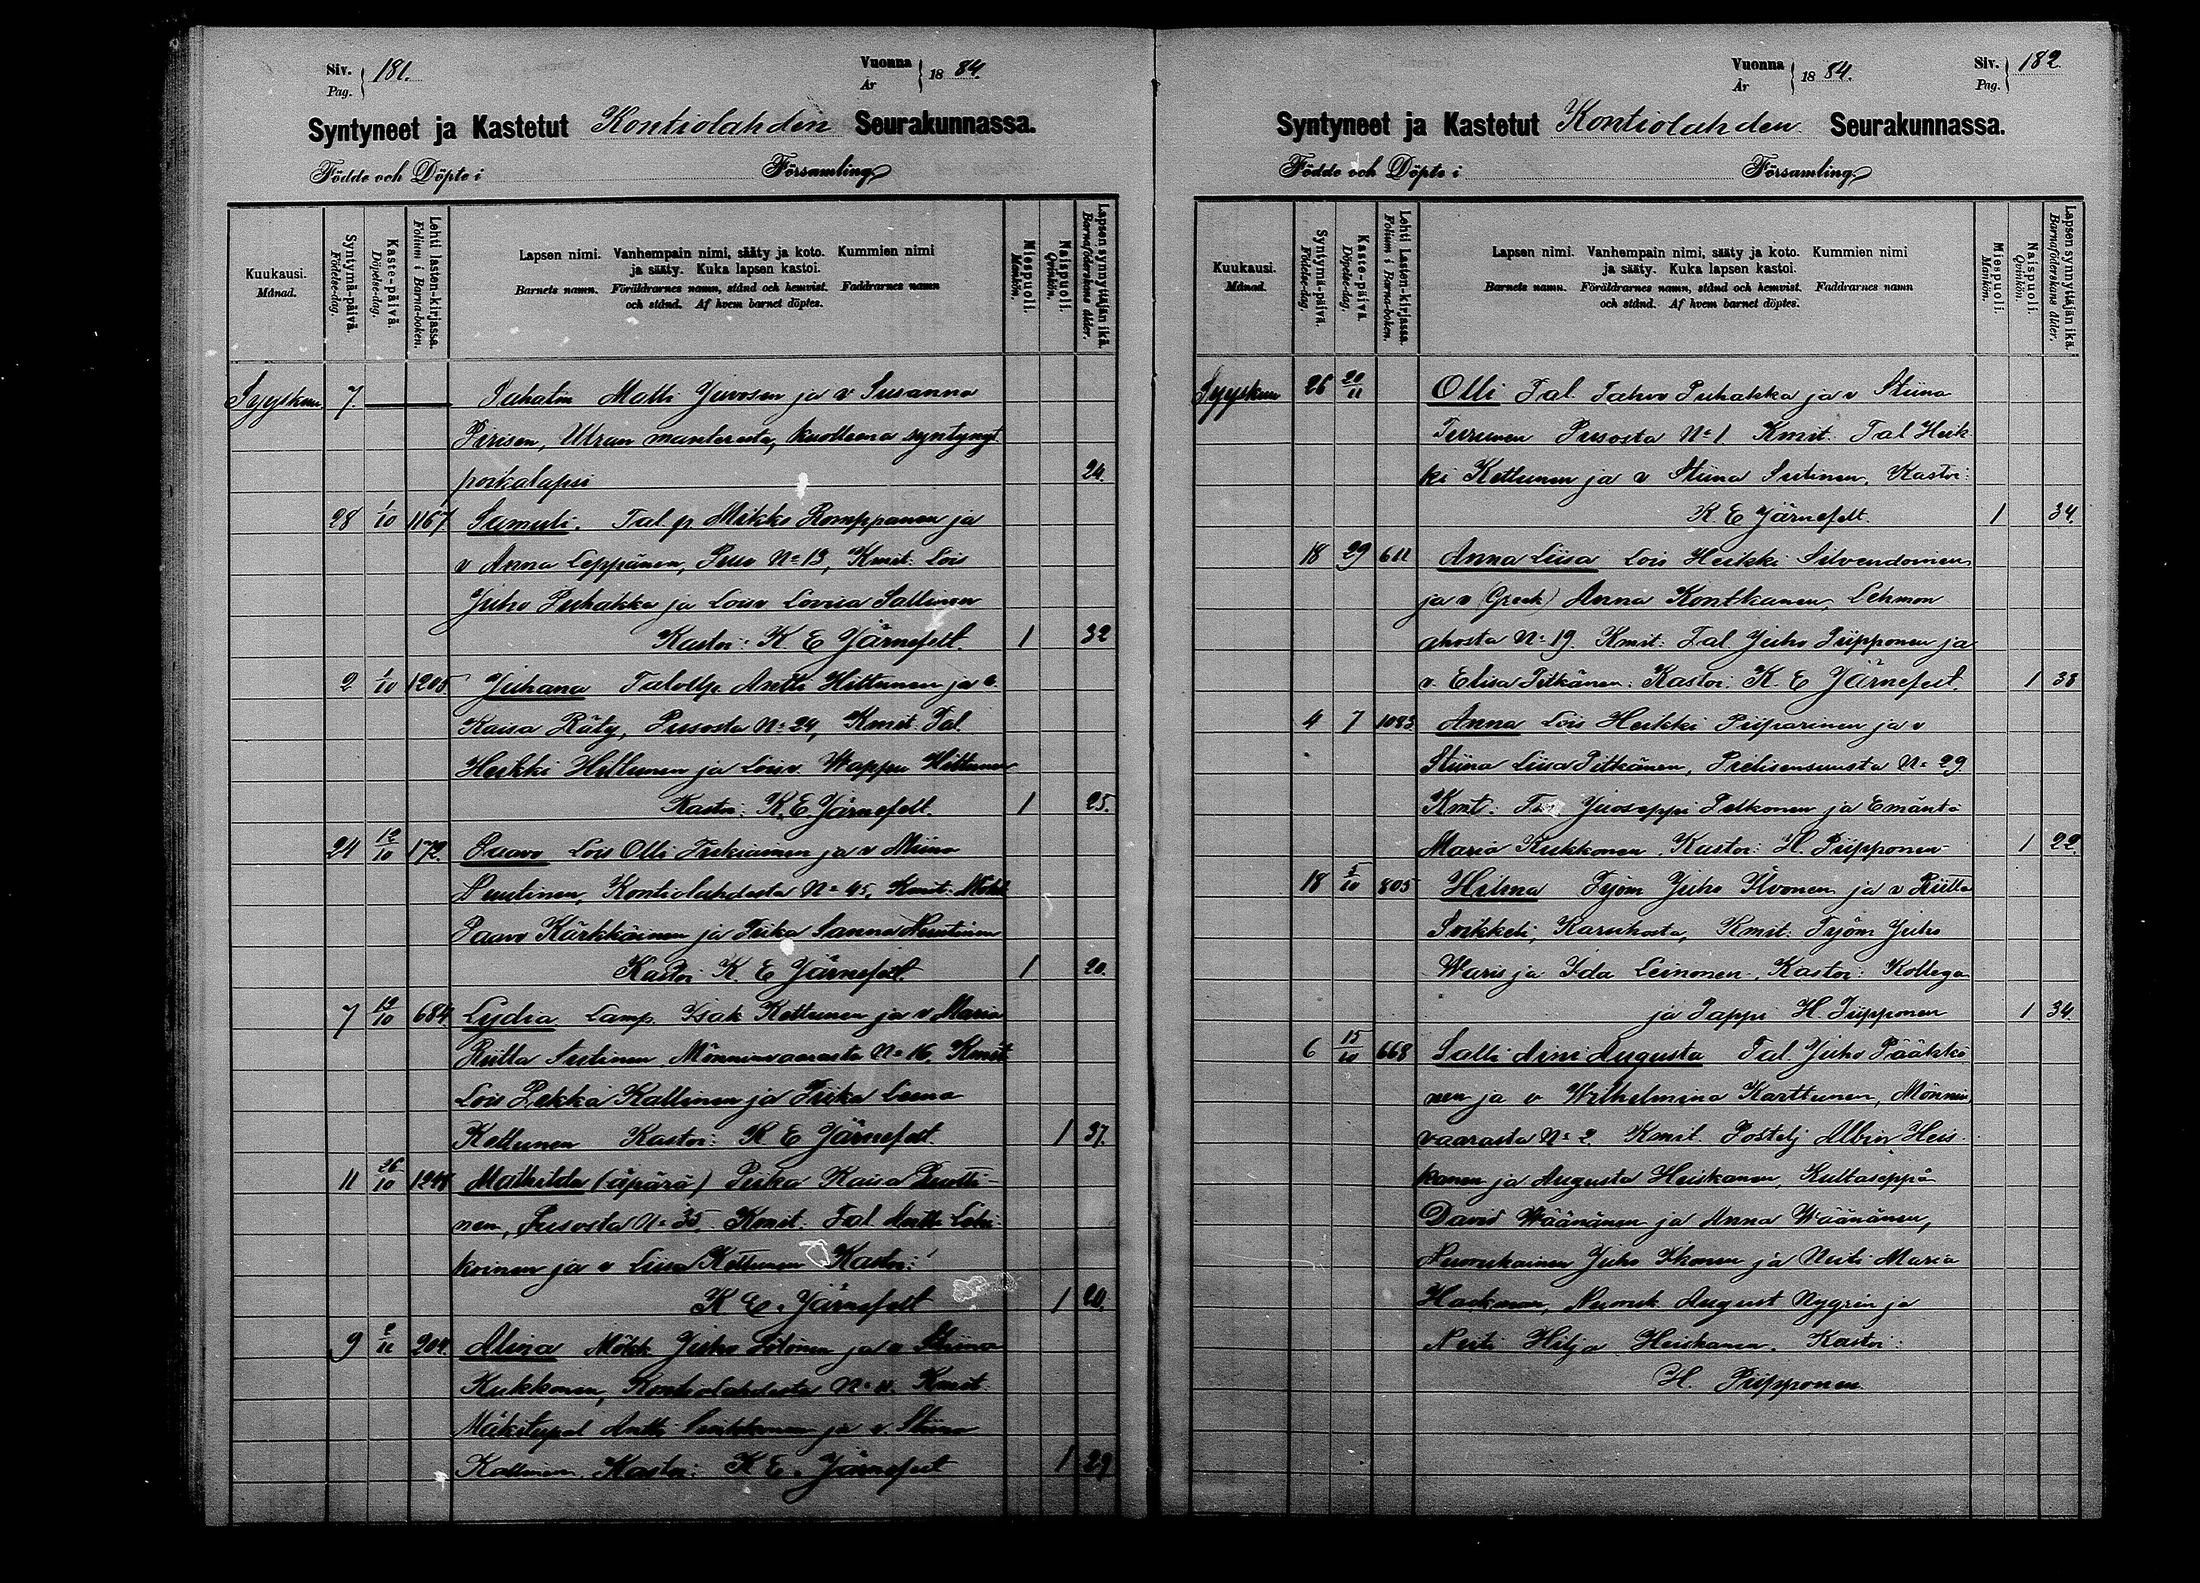 Siv. 181. Vuonna 1884.
Pag. År
Syntyneet ja Kastetut Kontiolahden Seurakunnassa.
Födde och Döpte i Församling
Kuukausi.
Månad.
Syntymä-päivä.
Födelse-dag.
Kaste-päivä.
Döpelse-dag.
Lehti lasten-kirjassa.
Folium i Barna-boken.
Lapsen nimi. Vanhempain nimi, sääty ja koto. Kummien nimi
ja sääty. Kuka lapsen kastoi.
Barnets namn. Föräldrarnes namn, stånd och hemvist. Faddrarnes namn
och stånd. Af hvem barnet döptes.
Miespuoli.
Mankön.
Naispuoli.
Qvinkön.
Lapsen synnyttäjän ikä.
Barnaföderskans ålder.
Syyskuu 7. Matti Juvosen ja v Susanna
Piirisen, Utran kuolleena syntynyt
poikalapsi 24.
28 1/10 1167 Samuli. Tal p Mikko Romppanen ja
v Anna Leppänen, Puso No 13, Kmit: Lois
Juho Puhakka ja Lois v Loviisa Sallinen
Kastoi: K. E Järnefelt. 1 32
2 1/10 1205 Juhana Antti Hiltunen ja v.
Kaisa Räty, Pusosta No 24, Kmit. Tal.
Heikki Hiltunen ja Lois v. Wappu Hiltunen
Kastoi: K. E. Järnefelt. 1 25.
24 12/10 172. Paavo Lois Olli Turkiainen ja v Miina
Nuutinen, Kontiolahdesta No 45, Kmit: Mökk
Paavo Kärkkäinen ja Piika Sanna Nuutinen
Kastoi K. E Järnefelt. 1 20.
7 19/10 684 Lydia Lamp. Isak Kettunen ja v Maria
Riitta Sutinen, Mönninvaarasta No 16, Kmit
Lois Pekka Kallinen ja Piika Leena
Kettunen Kastoi: K E Järnefelt 1 37.
11 26/10 1248 Mathilda (äpärä) Piika Kaisa
nen, Pusosta No 35, Kmit. Tal Antti
koinen ja v Liisa Kettunen Kastoi:
K E. Järnefelt 1 20.
9 2/11 204. Alina Mökk Juho ja v Stiina
Kukkonen, Kontiolahdesta No 11. Kmit
Mäkitupal Antti ja v. Stiina
Kallinen. Kastoi: K E. Järnefelt 1 29
Vuonna 1884. Siv. 182
År Pag.
Syntyneet ja Kastetut Kontiolahden Seurakunnassa.
Födde och Döpte i Församling
Kuukausi.
Månad.
Syntymä-päivä.
Födelse-dag.
Kaste-päivä.
Döpelse-dag.
Lehti Lasten-kirjassa.
Folium i Barna-boken.
Lapsen nimi. Vanhempain nimi, sääty ja koto. Kummien nimi
ja sääty. Kuka lapsen kastoi.
Barnets namn. Föräldrarnes namn, stånd och hemvist. Faddrarnes namn
och stånd. Af hvem barnet döptes.
Miespuoli.
Mankön.
Naispuoli.
Qvinkön.
Lapsen synnyttäjän ikä.
Barnaföderskans ålder.
Syyskuu 26 20/11 Olli Tal Tahvo Puhakka ja v Stiina
Turunen Pusosta No 1 Kmit. Tal Heik
ki Kettunen ja v Stiina Sutinen, Kastoi:
K. E Järnefelt. 1 34.
18 29 611 Anna Liisa Lois Heikki Silvendoinen
ja v (Greek) Anna Kontkanen, Lehmon
ahosta No 19. Kmit: Tal Juho Piipponen ja
v. Elisa Pitkänen: Kastoi: K. E Järnefelt. 1 38
4 7 1083 Anna Lois Heikki Piiparinen ja v
Stiina Liisa Pitkänen, Pielisensuusta No 29
Kmt: Juoseppi Pelkonen ja Emäntä
Maria Kukkonen. Kastoi: H. Piipponen 1 22.
18 5/10 805 Hilma Työm Juho Ilvonen ja v Riitta
Soikkeli, Karuhosta, Kmit. Työm Juho
Waris ja Ida Leinonen. Kastoi: Kollega
ja Pappi H. Piipponen 1 34.
6 15/10 668 Salli Aini Augusta Tal Juho Pääkkö
nen ja v Wilhelmina Karttunen, Mönnin
vaarasta No 2. Kmit. Postilj Albin Heis
kanen ja Augusta Heiskanen, Kultaseppä
David Wäänänen ja Anna Wäänänen,
Nuorukainen Juho Ikonen ja Neiti Maria
Hackman, Nuoruk. August Nygrén ja
Neiti Hilja Heiskanen. Kastoi:
H. Piipponen